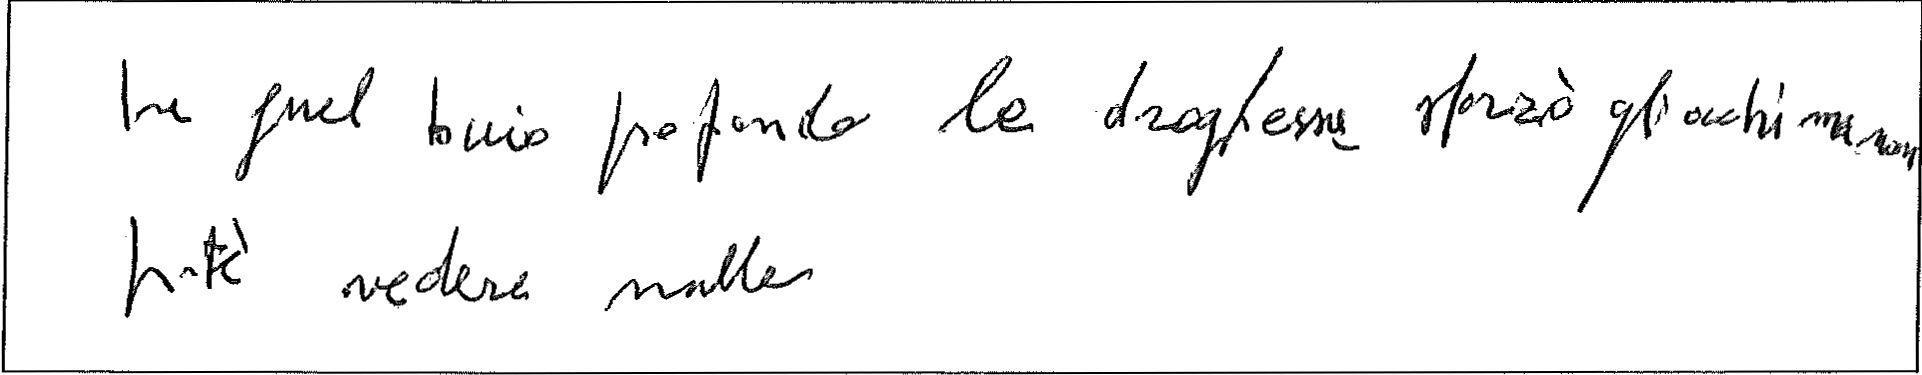 tra quel buio profondo la draghessa sforzò gli occhi ma non
potè vedere nulla